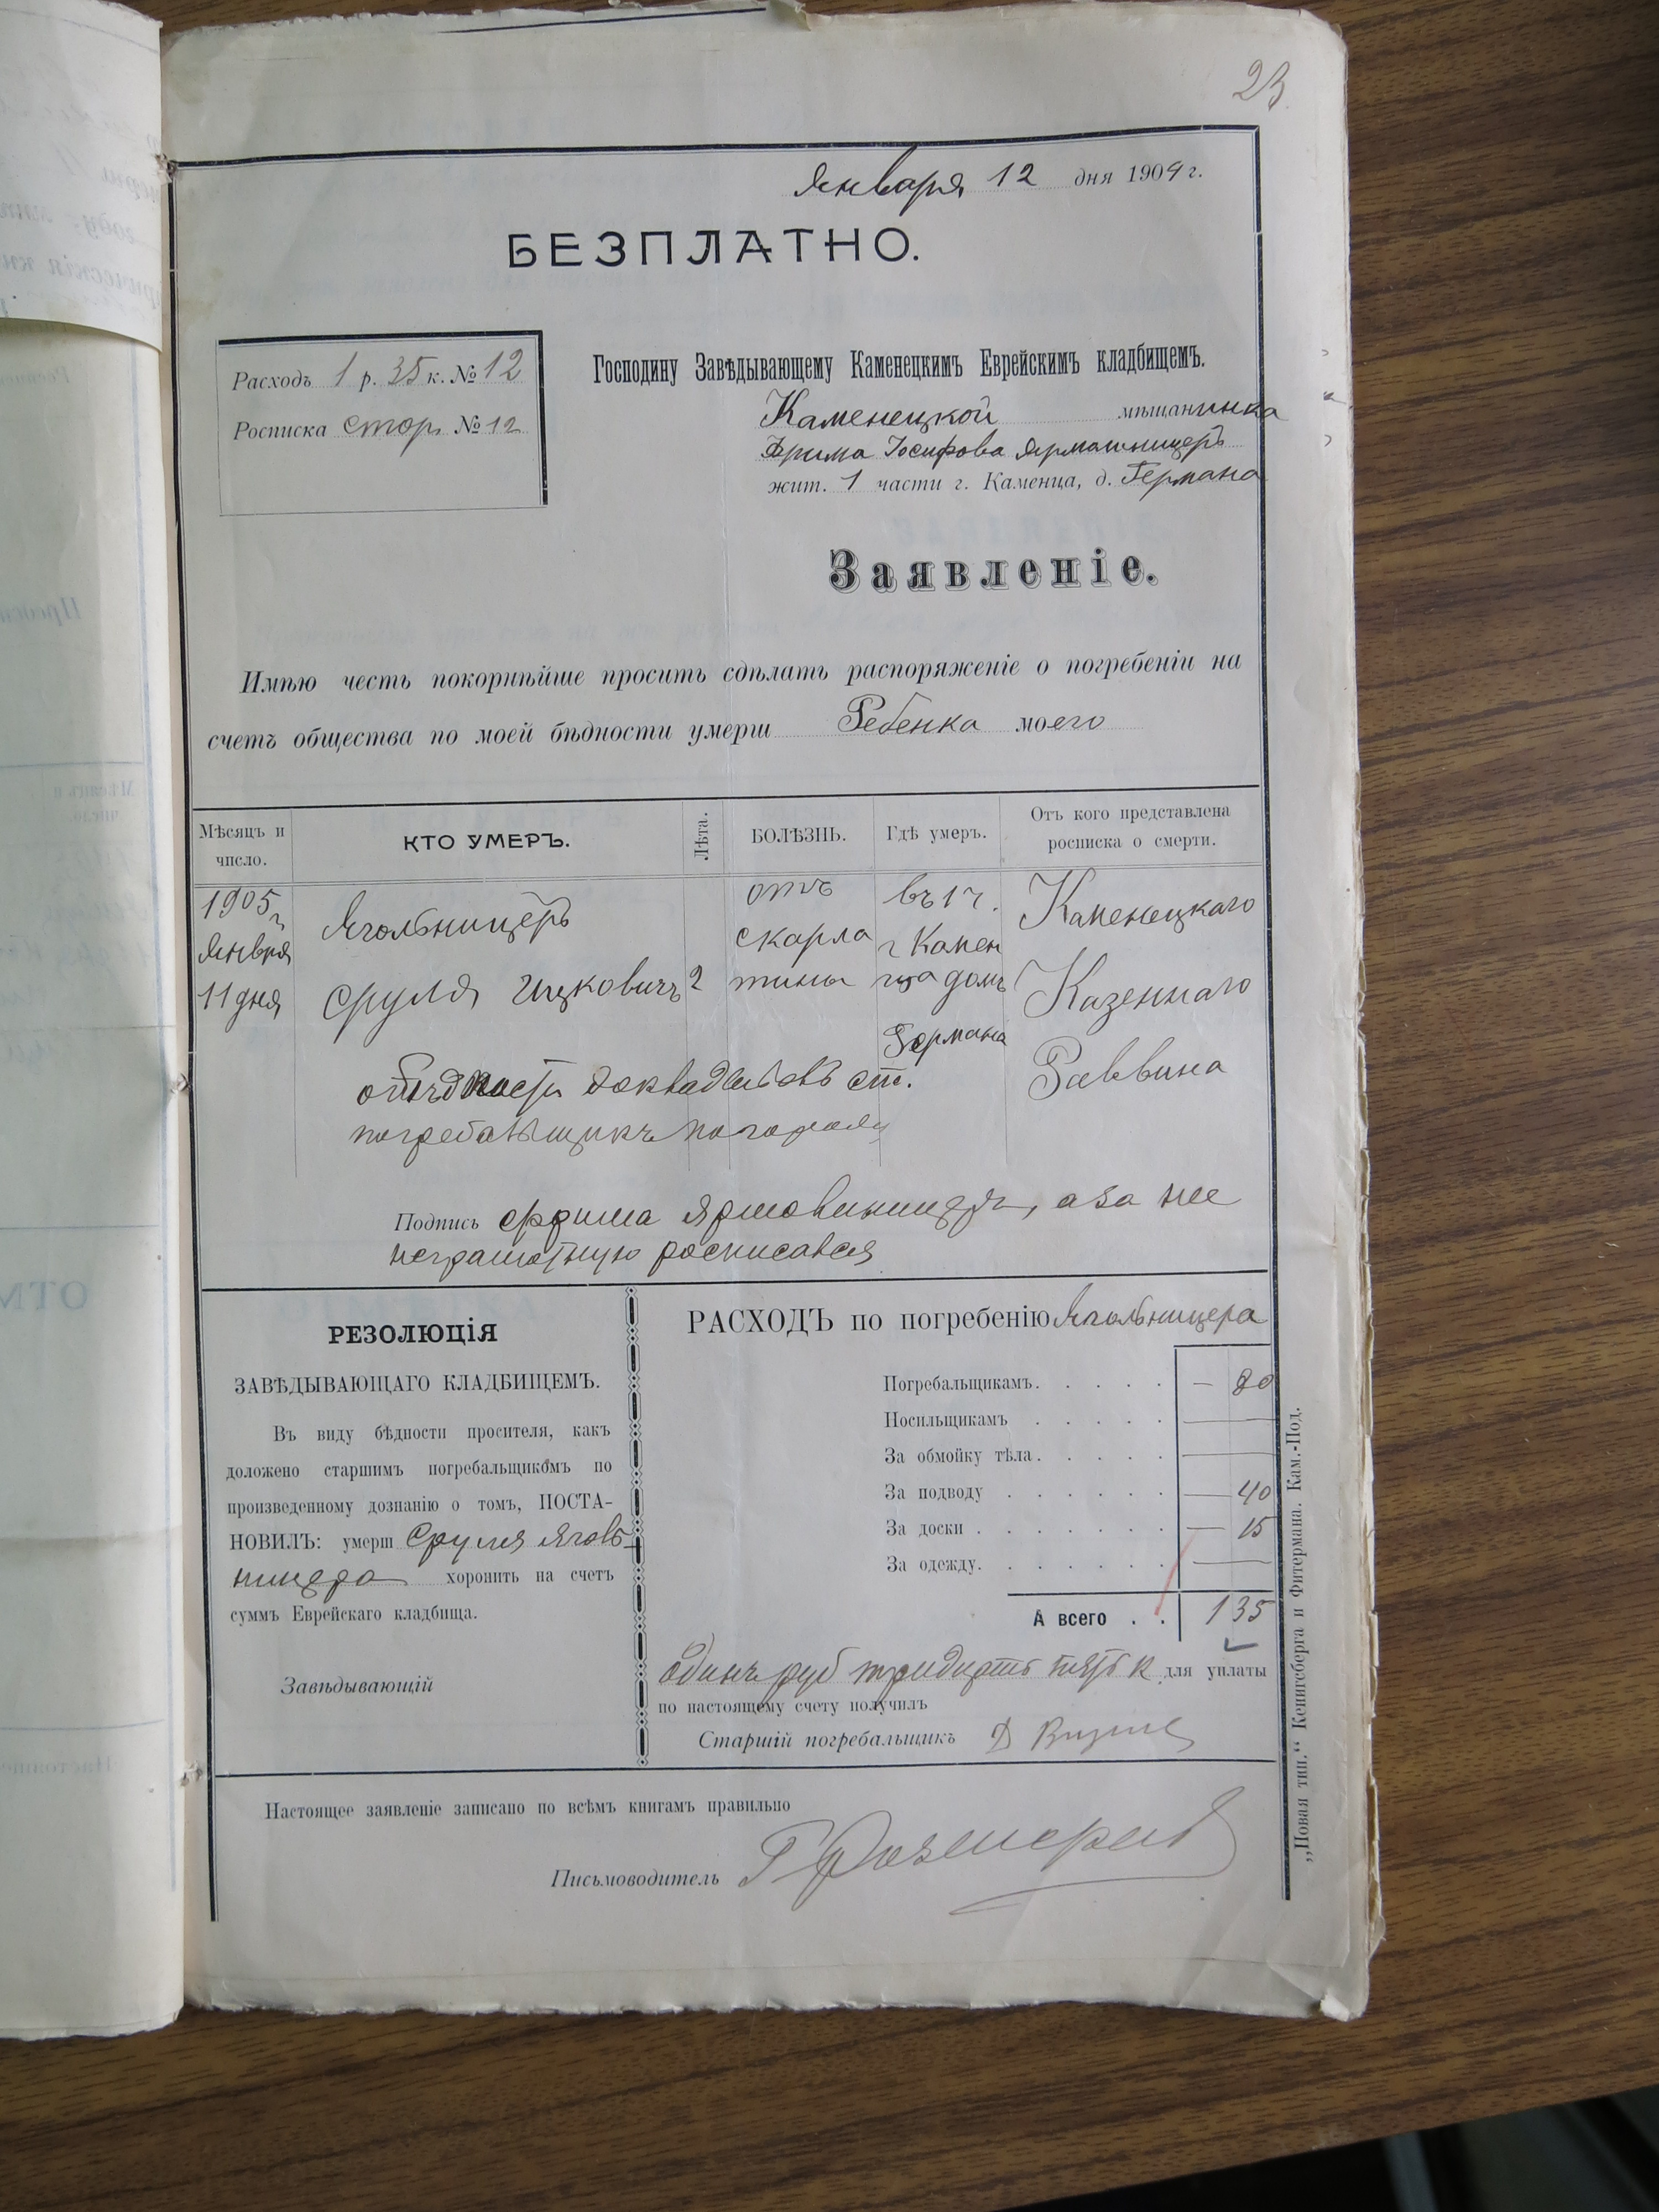 23
Января 12 дня 1904 г.
БЕЗПЛАТНО.
Расходъ 1 р. 35 к. № 12
Росписка стор. № 12
Господину Завѣдывающему Каменецкимъ Еврейскимъ кладбищемъ.
Каменецкой мѣщанинка
Фрима Іосифова
жит. 1 части г. Каменца, д. Германа
Заявленіе.
Имѣю честь покорнѣйше просить сдѣлать распоряженіе о погребеніи на
счетъ общества по моей бѣдности умерш Ребенка моего
Мѣсяцъ и число. КТО УМЕРЪ. Лѣта. БОЛѢЗНЬ. Гдѣ умеръ. Отъ кого представлена росписка о смерти.
1905 г. Ягольницеръ отъ въ 1 ч. Каменецкаго
Января скарла г Камен
11 дня Сруля Ицковичъ 2 тины ца домъ Казеннаго
Германа Раввина
о бѣдности докладывалъ ст.
погребальщикъ
Подпись Фрима, а за нее
неграмотную росписался
РЕЗОЛЮЦІЯ
ЗАВѢДЫВАЮЩАГО КЛАДБИЩЕМЪ.
Въ виду бѣдности просителя, какъ
доложено старшимъ погребальщикомъ по
произведенному дознанію о томъ, ПОСТА-
НОВИЛЪ: умерш Сруля Яголь-
ницера хоронить на счетъ
суммъ Еврейскаго кладбища.
Завѣдывающій
РАСХОДЪ по погребенію Ягольницера
Погребальщикамъ. . . . . — 80
Носильщикамъ . . . . . —
За обмойку тѣла. . . . . —
За подводу . . . . . . — 40
За доски . . . . . . . — 15
За одежду. . . . . . . —
А всего . . 1 35
Одинъ руб тридцать пять к для уплаты
по настоящему счету получилъ
Старшій погребальщикъ Д
Настоящее заявленіе записано по всѣмъ книгамъ правильно
Письмоводитель Г
„Новая тип.“ Кенигсберга и Фитермана. Кам.-Под.